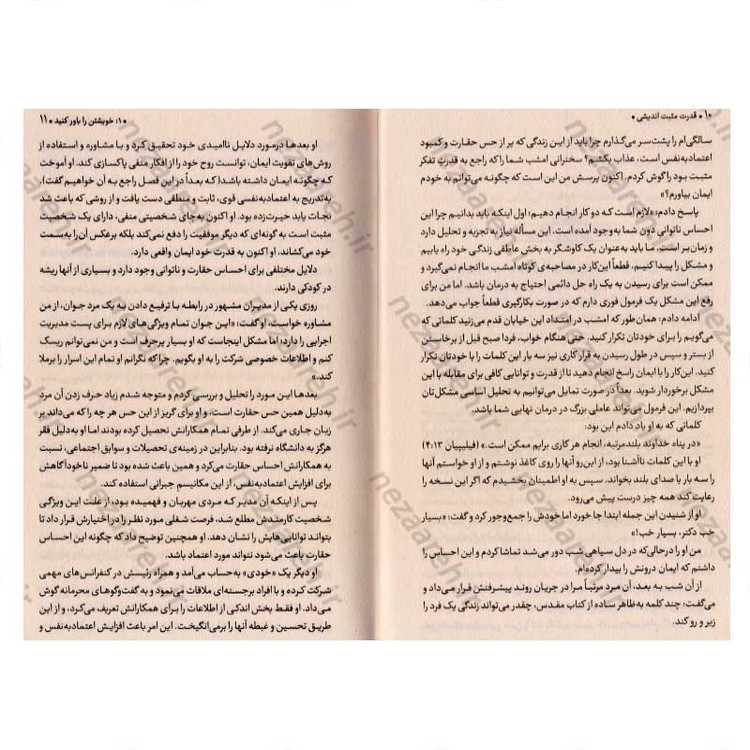 ۱۰ • قدرت مثبت اندیشی •
سالگی‌ام را پشت‌سر می‌گذارم چرا باید از این زندگی که پر از حس حقارت و کمبود
اعتمادبه‌نفس است، عذاب بکشم؟ سخنرانی امشب شما را که راجع به قدرتِ تفکر
مثبت بود را گوش کردم. اکنون پرسش من این است که چگونه می‌توانم به خودم
ایمان بیاورم؟»
پاسخ دادم: «لازم است که دو کار انجام دهیم؛ اول اینکه باید بدانیم چرا این
احساس ناتوانی دون شما به‌وجود آمده است. این مسأله نیاز به تجزیه و تحلیل دارد
و زمان‌بر است. ما باید به‌عنوان یک کاوشگر به بخش عاطفی زندگی خود راه یابیم
و مشکل را پیدا کنیم. قطعاً این‌کار در مصاحبه‌ی کوتاه امشب ما انجام نمی‌گیرد و
ممکن است برای رسیدن به یک راه حل دائمی احتیاج به درمان باشد. اما من برای
رفع این مشکل یک فرمول فوری دارم که در صورت بکارگیری قطعاً جواب می‌دهد.
ادامه دادم: همان‌طور که امشب در امتداد این خیابان قدم می‌زنید کلماتی که
می‌گویم را برای خودتان تکرار کنید. حتی هنگام خواب، فردا صبح قبل از برخاستن
از بستر و سپس در طول رسیدن به قرار کاری نیز سه بار این کلمات را با خودتان تکرار
کنید. این‌کار را با ایمان راسخ انجام دهید تا از قدرت و توانایی کافی برای مقابله با این
مشکل برخوردار شوید. بعداً در صورت تمایل می‌توانیم به تحلیل اساسی مشکل‌تان
بپردازیم. این فرمول می‌تواند عاملی بزرگ در درمان نهایی شما باشد.
کلماتی که به او یاد دادم این بود:
«در پناه خداوند بلندمرتبه، انجام هر کاری برایم ممکن است.» (فیلیپیان ۴:۱۳)
او با این کلمات ناآشنا بود، از این‌رو آنها را روی کاغذ نوشتم و از او خواستم آنها
را سه بار با صدای بلند بخواند. سپس به او اطمینان بخشیدم که اگر این نسخه را
رعایت کند همه چیز درست پیش می‌رود.
او از شنیدن این جمله ابتدا جا خورد اما خودش را جمع‌وجور کرد و گفت: «بسیار
خب دکتر، بسیار خب!»
من او را درحالی‌که در دل سیاهی شب دور می‌شد تماشا کردم و این احساس را
داشتم که ایمان درونش را بیدار کرده‌ام.
از آن شب به بعد، آن مرد مرتباً مرا در جریان روند پیشرفتش قرار می‌داد و
می‌گفت: چند کلمه به‌ظاهر ساده از کتاب مقدس، چقدر می‌تواند زندگی یک فرد را
زیر و رو کند.
۱۰: خویشتن را باور کنید • ۱۱
او بعدها درمورد دلایل ناامیدی خود تحقیق کرد و با مشاوره و استفاده از
روش‌های تقویت ایمان، توانست روح خود را از افکار منفی پاکسازی کند. او آموخت
که چگونه ایمان داشته باشد( که بعداً در این فصل راجع به آن خواهیم گفت)،
به‌تدریج به اعتمادبه‌نفسی قوی، ثابت و منطقی دست یافت و از روشی که باعث شد
نجات یابد حیرت‌زده بود. او اکنون به‌جای شخصیتی منفی، دارای یک شخصیت
مثبت است به گونه‌ای که دیگر موفقیت را دفع نمی‌کند بلکه برعکس آن را به‌سمت
خود می‌کشاند. او اکنون به قدرت خود ایمان واقعی دارد.
دلایل مختلفی برای احساس حقارت و ناتوانی وجود دارد و بسیاری از آنها ریشه
در کودکی دارند.
روزی یکی از مدیران مشهور در رابطه با ترفیع دادن به یک مرد جوان، از من
مشاوره خواست. او گفت: «این جوان تمام ویژگی های لازم برای پست مدیریت
اجرایی را دارد؛ اما مشکل اینجاست که او بسیار پرحرف است و من نمی‌توانم ریسک
کنم و اطلاعات خصوصی شرکت را به او بگویم. چرا که نگرانم او تمام این اسرار را برملا
کند.»
بعدها این مورد را تحلیل و بررسی کردم و متوجه شدم زیاد حرف زدن آن مرد
به‌دلیل همین حس حقارت است، و او برای گریز از این حس هر چه را که می‌داند بر
زبان جاری می‌کند. از طرفی تمام همکارانش تحصیل کرده بودند اما او به‌دلیل فقر
هرگز به دانشگاه نرفته بود. بنابراین در زمینه‌ی تحصیلات و سوابق اجتماعی، نسبت
به همکارانش احساس حقارت می‌کرد و همین باعث شده بود تا ضمیر ناخودآگاهش
برای افزایش اعتمادبه‌نفس، از این مکانیسم جبرانی استفاده کند.
پس از اینکه آن مدیر که مردی مهربان و فهمیده بود، از علت این ویژگی
شخصیت کارمندش مطلع شد، فرصت شغلی مورد نظر را در اختیارش قرار داد تا
بتواند توانایی‌هایش را نشان دهد. او همچنین توضیح داد که چگونه این احساس
حقارت باعث می‌شود نتواند مورد اعتماد باشد.
او دیگر یک «خودی» به‌حساب می‌آمد و همراه رئیسش در کنفرانس‌های مهمی
شرکت کرده و با افراد برجسته‌ای ملاقات می‌نمود و به گفت‌وگوهای محرمانه گوش
می‌داد. او فقط بخش اندکی از اطلاعات را برای همکارانش تعریف می‌کرد، و از این
طریق تحسین و غبطه آنها را برمی‌انگیخت. این امر باعث افزایش اعتمادبه‌نفس و
nezaareh.ir